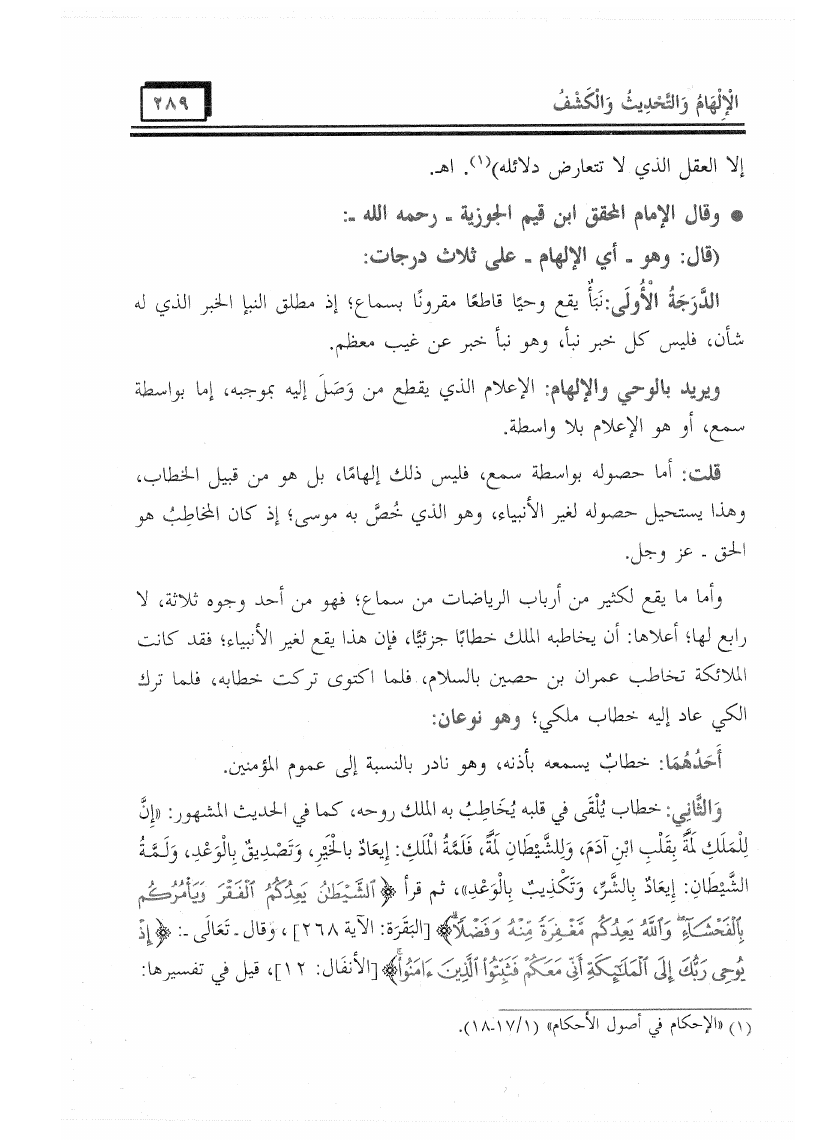 الْإِلْهَامُ وَالتَّحْدِيثُ وَالْكَشْفُ ٢٨٩
إلا العقل الذي لا تتعارض دلائله)(١). اهـ.
● وقال الإمام المحقق ابن قيم الجوزية ـ رحمه الله ـ:
(قال: وهو ـ أي الإلهام ـ على ثلاث درجات:
الدَّرَجَةُ الْأُولَى: نَبَأٌ يقع وحيًا قاطعًا مقرونًا بسماع؛ إذ مطلق النبإ الخبر الذي له
شأن، فليس كل خبر نبأ، وهو نبأ خبر عن غيب معظم.
ويريد بالوحي والإلهام: الإعلام الذي يقطع من وَصَلَ إليه بموجبه، إما بواسطة
سمع، أو هو الإعلام بلا واسطة.
قلت: أما حصوله بواسطة سمع، فليس ذلك إلهامًا، بل هو من قبيل الخطاب،
وهذا يستحيل حصوله لغير الأنبياء، وهو الذي خُصَّ به موسى؛ إذ كان المخاطِبُ هو
الحق ـ عز وجل.
وأما ما يقع لكثير من أرباب الرياضات من سماع؛ فهو من أحد وجوه ثلاثة، لا
رابع لها؛ أعلاها: أن يخاطبه الملك خطابًا جزئيًّا، فإن هذا يقع لغير الأنبياء؛ فقد كانت
الملائكة تخاطب عمران بن حصين بالسلام، فلما اكتوى تركت خطابه، فلما ترك
الكي عاد إليه خطاب ملكي؛ وهو نوعان:
أَحَدُهُمَا: خطابٌ يسمعه بأذنه، وهو نادر بالنسبة إلى عموم المؤمنين.
وَالثَّانِي: خطاب يُلْقَى في قلبه يُخَاطِبُ به الملك روحه، كما في الحديث المشهور: «إِنَّ
لِلْمَلَكِ لَمَّةً بِقَلْبِ ابْنِ آدَمَ، وَلِلشَّيْطَانِ لَمَّةً، فَلَمَّةُ الْمَلَكِ: إِيعَادٌ بِالْخَيْرِ، وَتَصْدِيقٌ بِالْوَعْدِ، وَلَمَّةُ
الشَّيْطَانِ: إِيعَادٌ بِالشَّرِّ، وَتَكْذِيبٌ بِالْوَعْدِ»، ثم قرأ ﴿ٱلشَّيْطَٰنُ يَعِدُكُمُ ٱلْفَقْرَ وَيَأْمُرُكُم
بِٱلْفَحْشَآءِ ۖ وَٱللَّهُ يَعِدُكُم مَّغْفِرَةً مِّنْهُ وَفَضْلًا ۗ﴾ [البَقَرَة: الآية ٢٦٨] ، وقال ـ تَعَالَى ـ: ﴿إِذْ
يُوحِى رَبُّكَ إِلَى ٱلْمَلَٰٓئِكَةِ أَنِّى مَعَكُمْ فَثَبِّتُوا۟ ٱلَّذِينَ ءَامَنُوا۟ ۚ﴾ [الأنفَال: ١٢]، قيل في تفسيرها:
(١) «الإحكام في أصول الأحكام» (١/١٧-١٨).